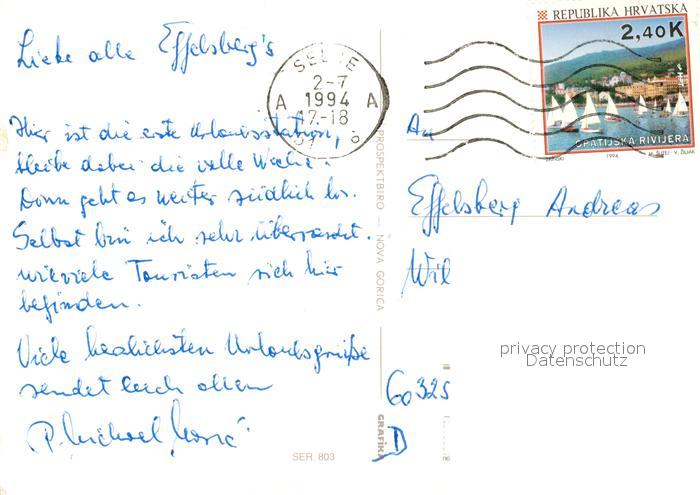 Liebe alle Effelsberg's
Hier ist die erste Urlaubsstation,
bleibe dabei die volle Woche.
Dann geht es weiter südlich los.
Selbst bin ich sehr überrascht.
wieviele Touristen sich hier
befinden.
Viele herzlichsten Urlaubsgrüße
sendet Euch allen
P. Michael
SELCE
2-7
A 1994 A
17-18
REPUBLIKA HRVATSKA
2,40K
OPATIJSKA RIVIJERA
1994
M. ŠUTEJ - V. ŽILJAK
An
Effelsberg Andreas
Wil
privacy protection
Datenschutz
60325
D
PROSPEKTBIRO — NOVA GORICA
GRAFIKA
SER. 803